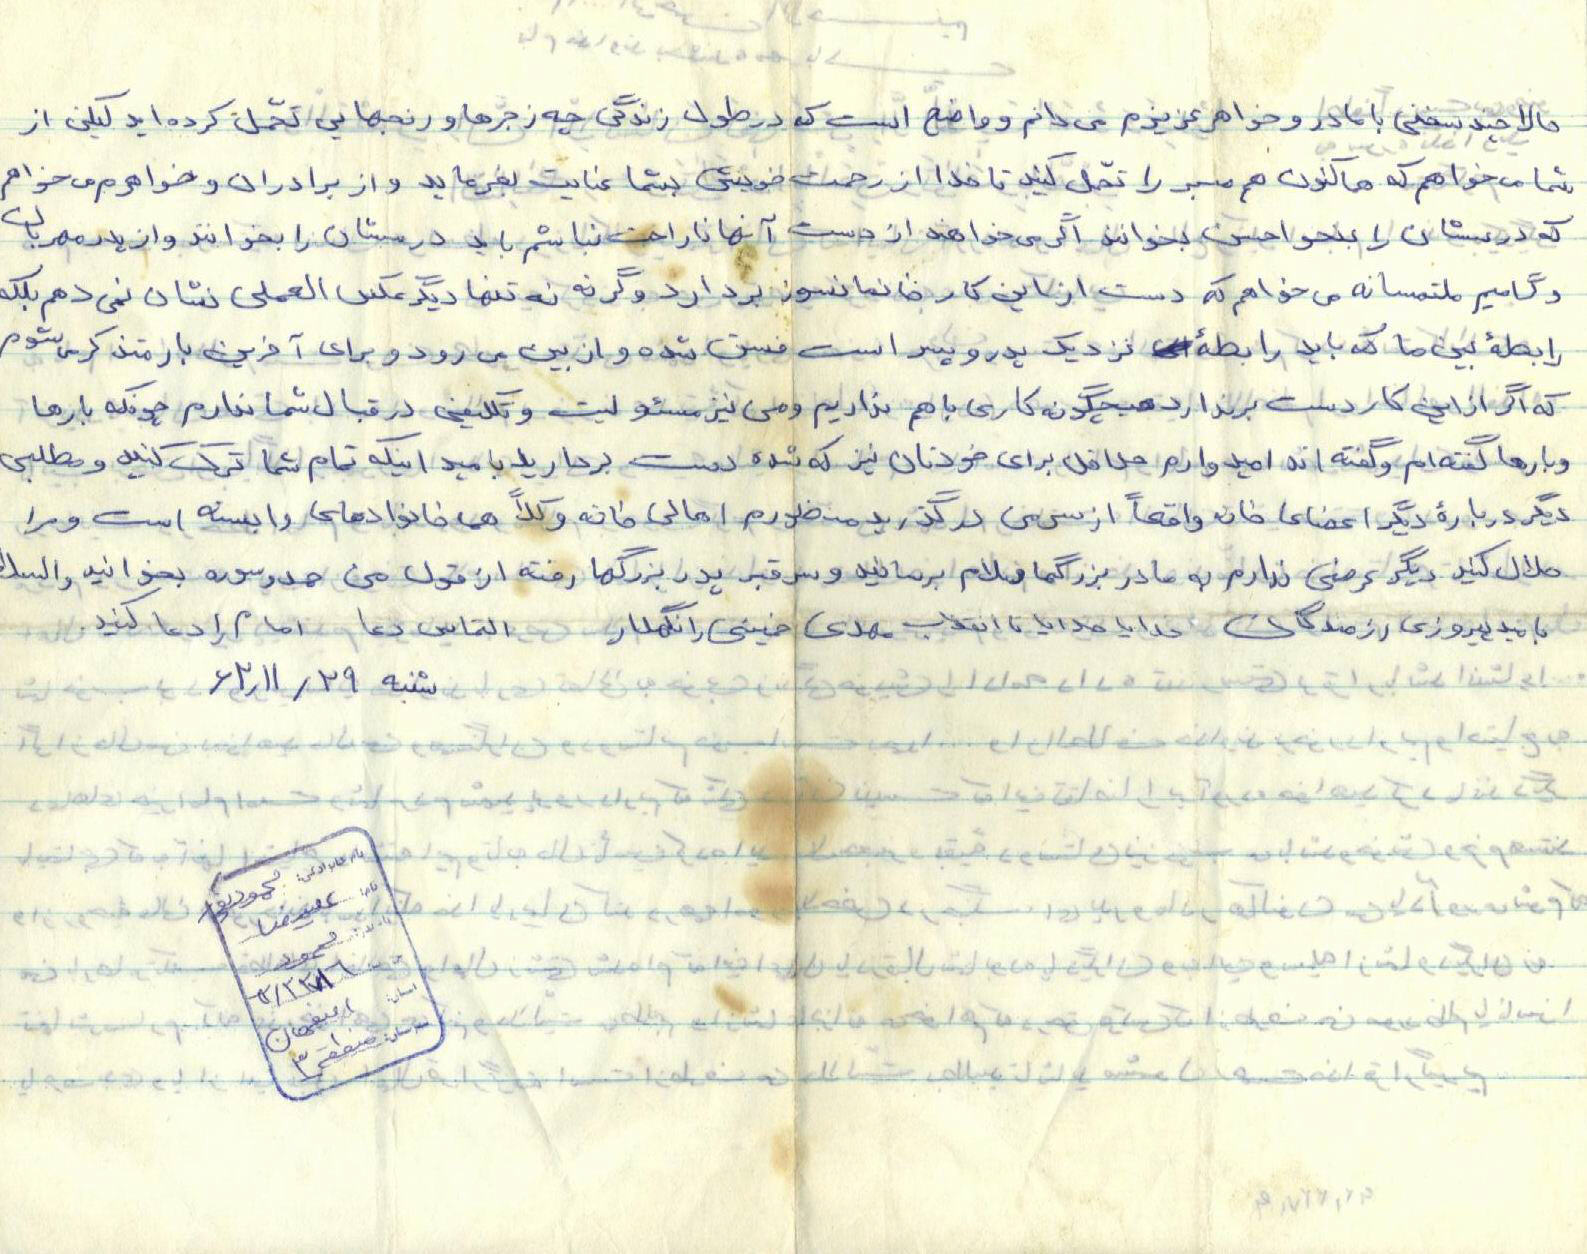 حالا چند سخنی با مادر و خواهر عزیزم می دانم و واضح است که در طول زندگی چه زجرها و رنجهایی تحمّل کرده اید لیکن از
شما می خواهم که هم اکنون هم صبر را تحمّل کنید تا خدا از رحمت خویش بشما عنایت بفرماید و از برادران و خواهرم می خواهم
که درستان را بنحو احسن بخوانند اگر می خواهند از دست آنها ناراحت نباشم باید درستان را بخوانند و از پدر مهربان
و گرامیم ملتمسانه می خواهم که دست از این کار خانمانسوز بردارد وگرنه نه تنها دیگر عکس العملی نشان نمی دهم بلکه
رابطهٔ بین ما که باید رابطهٔ نزدیک پدر و پسر است فسق شده و از بین می رود و برای آخرین بار متذکر می شوم
که اگر از این کار دست برندارد هیچگونه کاری با هم نداریم و من نیز مسئولیت و تکلیفی در قبال شما ندارم چونکه بارها
و بارها گفته ام و گفته اند امیدوارم حداقل برای خودتان نیز که شده دست بردارید بامید اینکه تمام شما ترک کنید و مطلبی
دیگر دربارهٔ دیگر اعضای خانه واقعاً از سر من درگذرید منظورم اهالی خانه و کلاً همه خانوادهای وابسته است و مرا
حلال کنید دیگر عرضی ندارم به مادر بزرگها سلام برسانید و سر قبر پدر بزرگها رفته از قول من حمد و سوره بخوانید والسلام
بامید پیروزی رزمندگان خدایا خدایا تا انقلاب مهدی خمینی را نگهدار التماس دعا امام را دعا کنید.
شنبه ۶۲/۱۱/۲۹
نام خانوادگی: محمودپور
نام: علیرضا
نام پدر: محمود
استان: اصفهان
منطقه ۳